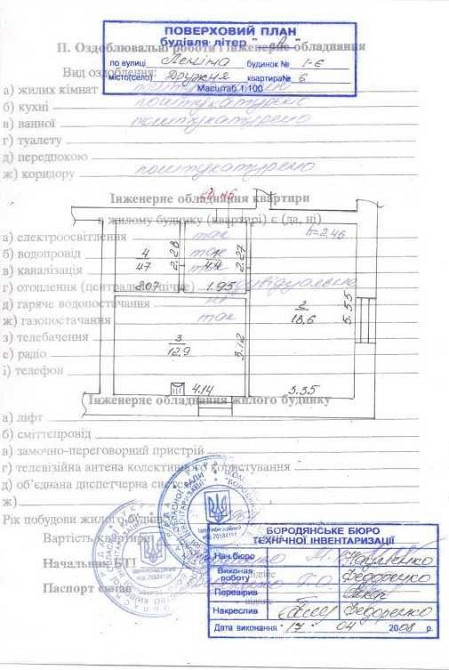 ПОВЕРХОВИЙ ПЛАН
будівля літер "
II. Оздоблювальні роботи і інженерне обладнання
по вулиці Леніна будинок № 1-б
Вид оздоблення:
місто(село) Дружня квартира№ 6
Масштаб 1:100
а) жилих кімнат поштукатурено
б) кухні поштукатурено
в) ванної поштукатурено
г) туалету
д) передпокою
ж) коридору поштукатурено
Інженерне обладнання квартири
в жилому будинку (квартирі) є (да, ні)
а) електроосвітлення так
h=2,46
б) водопровід так
в) каналізація
4
47
2.28
1
4.4
2.27
2.07
1.95
г) отоплення (центральне, пічне) індивідуальне
2
18,6
5.55
д) гаряче водопостачання ні
ж) газопостачання так
з) телебачення
3
12,9
3.12
е) радіо
і) телефон
4.14
5.35
Інженерне обладнання жилого будинку
а) ліфт
б) сміттєпровід
в) замочно-переговорний пристрій
г) телевізійна антена колективного користування
д) об'єднана диспетчерна система
ж)
Рік побудови жилого будинку
Вартість квартири
Начальник БТІ
Паспорт склав
БОРОДЯНСЬКЕ БЮРО
ТЕХНІЧНОЇ ІНВЕНТАРИЗАЦІЇ
Нач.бюро
Виконав роботу Федоренко
Перевірив
Накреслив Федоренко
Дата виконання "17" 04 2008 р.